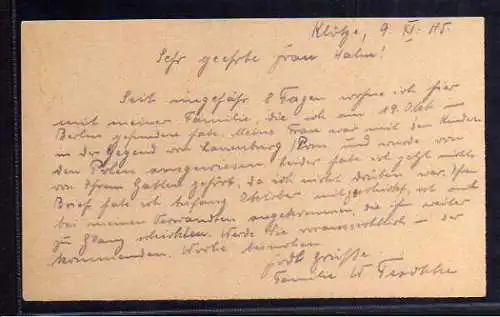 Klötze, 9. XI. 45.
Sehr geehrte Frau Hahn!
Seit ungefähr 8 Tagen wohne ich hier
mit meiner Familie, die ich am 19. Okt. in
Berlin gefunden habe. Meine Frau war mit den Kindern
in der Gegend von Lauenburg/Pom und wurde von
den Polen ausgewiesen. Leider habe ich jetzt nichts
von Ihrem Gatten gehört, da ich nicht drüben war. Ihren
Brief habe ich Anfang Oktober mitgeschickt, ist auch
bei meinen Verwandten angekommen, die ihn weiter
zu schickten. Werde Sie voraussichtlich in der
kommenden Woche besuchen.
Grüße
Familie W